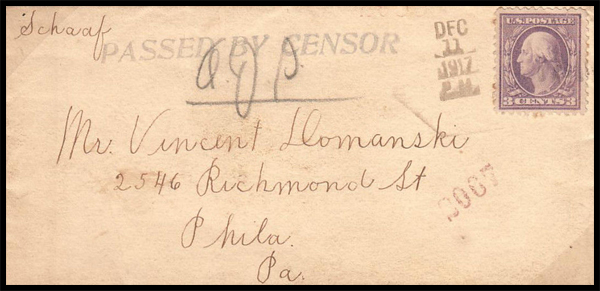 Schaaf
PASSED BY CENSOR
DEC
11
1917
P.M.
U.S. POSTAGE
3 CENTS 3
Mr. Vincent Domanski
2546 Richmond St
Phila.
Pa.